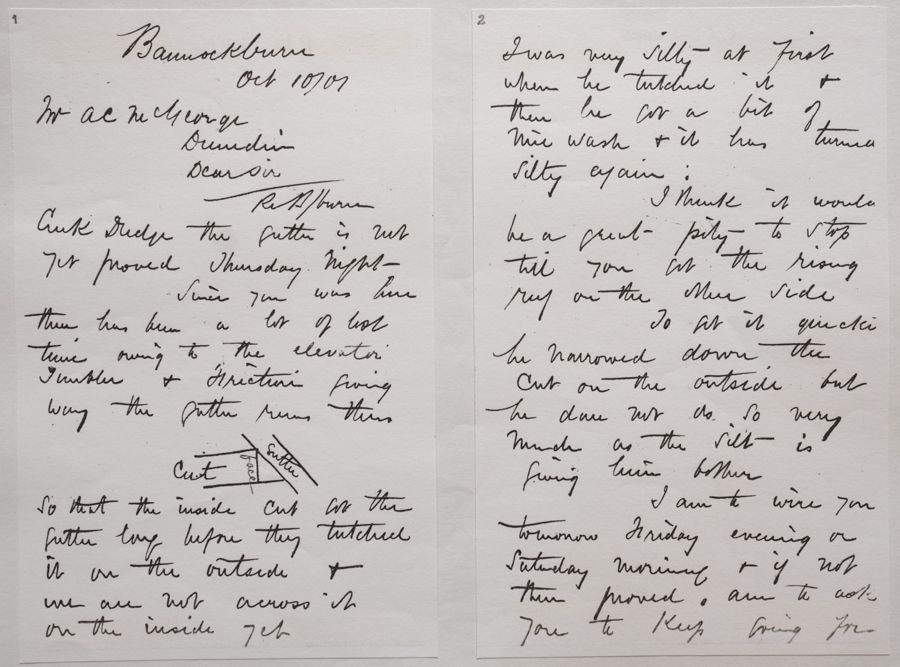 1
Bannockburn
Oct 10/01
Mr A C McGeorge
Dunedin
Dear Sir
Re A/burn
Creek Dredge the gutter is not
yet proved Thursday Night
Since you was here
there has been a lot of lost
time owing to the elevator
Tumbler & Friction giving
way the gutter runs thus
Cut face gutter
So that the inside cut got the
gutter long before they tutched
it on the outside &
we are not across it
on the inside yet
2
I was very silty at first
when he tutched it &
then he got a bit of
nice wash & it has turned
silty again.
I think it would
be a great pity to stop
till you got the rising
reef on the other side
To get it
he narrowed down the
cut on the outside but
he dare not do so very
much as the silt is
giving him bother
I am to wire you
tomorrow Friday evening or
Saturday morning & if not
then proved, am to ask
you to keep going for